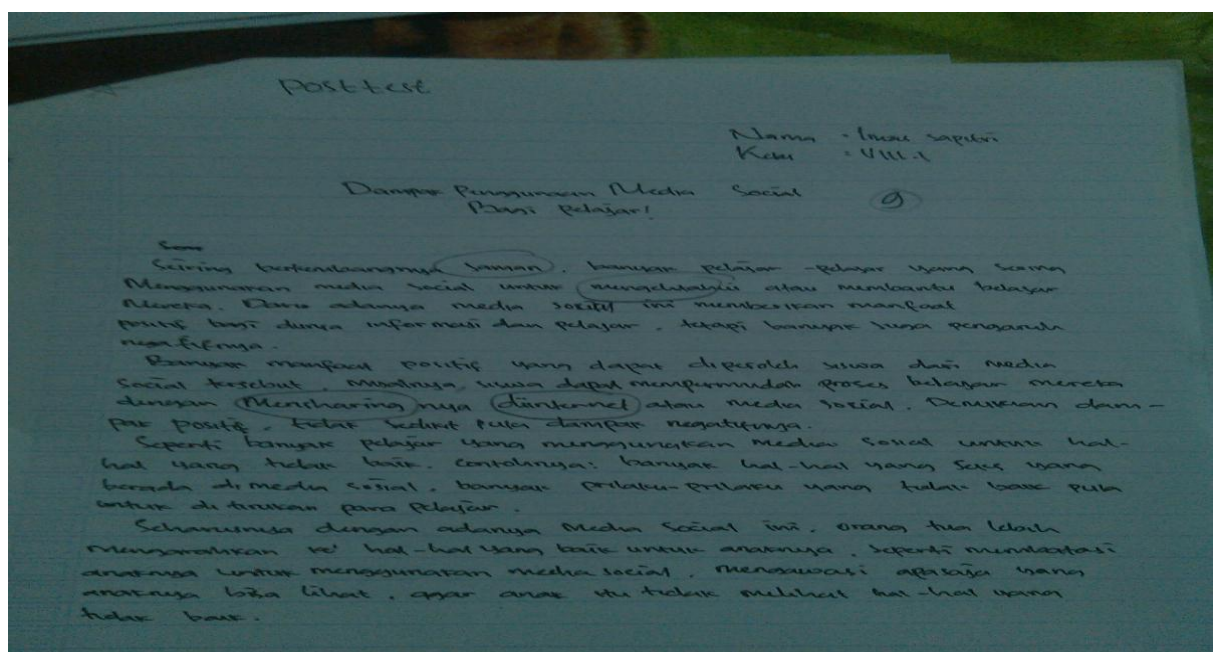 Posttest
Nama : saputri
Kelas : VIII.1
Dampak Penggunaan Media Social
Bagi Pelajar!
9
Seiring berkembangnya saman, banyak pelajar-pelajar yang sering
Menggunakan media social untuk mengetahui atau membantu belajar
Mereka. adanya media sosial ini memberikan manfaat
positif bagi dunia informasi dan pelajar, tetapi banyak juga pengaruh
negatifnya.
Banyak manfaat positif yang dapat diperoleh siswa dari media
social tersebut, misalnya, siswa dapat mempermudah proses belajar mereka
dengan Mensharing nya diinternet atau media sosial. Demikian dam-
pak positif, tidak sedikit pula dampak negatifnya.
Seperti banyak pelajar yang menggunakan media sosial untuk hal-
hal yang tidak baik. contohnya: banyak hal-hal yang yang
berada di media sosial, banyak prilaku-prilaku yang tidak baik pula
untuk di tirukan para pelajar.
Seharusnya dengan adanya media social ini, orang tua lebih
Mengarahkan ke' hal-hal yang baik untuk anaknya, seperti membatasi
anaknya untuk menggunakan media social, mengawasi apasaja yang
anaknya bisa lihat, agar anak itu tidak melihat hal-hal yang
tidak baik.